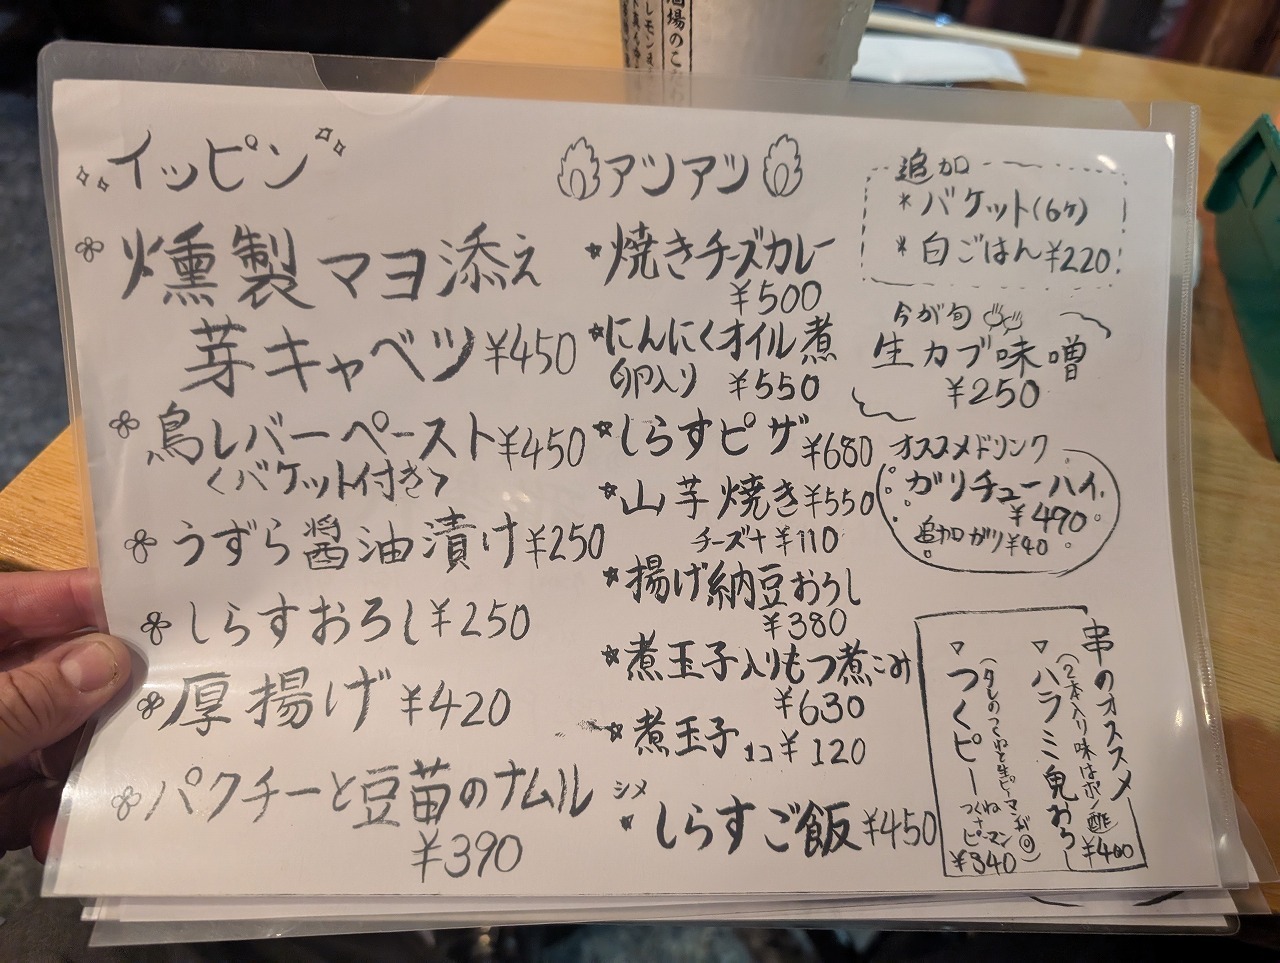 イッピン
燻製マヨ添え
芽キャベツ ¥450
鳥レバーペースト ¥450
<バケット付き>
うずら醤油漬け ¥250
しらすおろし ¥250
厚揚げ ¥420
パクチーと豆苗のナムル
¥390
アツアツ
焼きチーズカレー
¥500
にんにくオイル煮
卵入り ¥550
しらすピザ ¥680
山芋焼き ¥550
チーズ+ ¥110
揚げ納豆おろし
¥380
煮玉子入りもつ煮こみ
¥630
煮玉子 1コ ¥120
シメ
しらすご飯 ¥450
追加
*バケット(6ヶ)
*白ごはん ¥220
今が旬
生カブ味噌
¥250
オススメドリンク
ガリチューハイ
¥490
追加ガリ ¥40
串のオススメ
▽ハラミ鬼おろし
(2本入り味はポン酢) ¥400
▽つくピー つくね+ピーマン ¥340
(タレのつくねと生ピーマンが◎)
酒場のこ
レモン